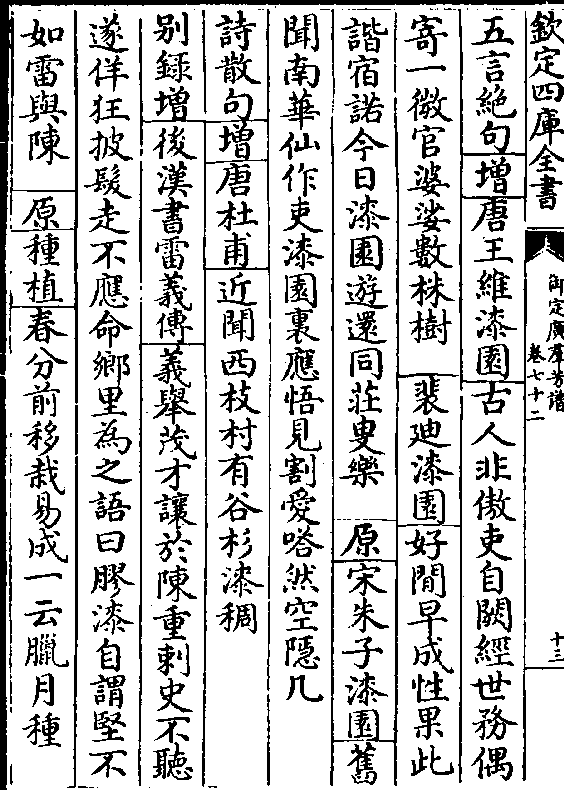 欽定四庫全書
御定廣羣芳譜
卷七十二
十三
五言絶句增唐王維漆園古人非傲吏自闕經世務偶
寄一微官婆娑數株樹 裴廸漆園好閒早成性果此
諧宿諾今日漆園遊還同莊叟樂 原宋朱子漆園舊
聞南華仙作吏漆園裏應悟見割愛嗒然空隱几
詩散句增唐杜甫近聞西枝村有谷杉漆稠
别錄增後漢書雷義傳義舉茂才讓於陳重刺史不聽
遂佯狂披髮走不應命鄉里為之語曰膠漆自謂堅不
如雷與陳 原種植春分前移栽易成一云臘月種